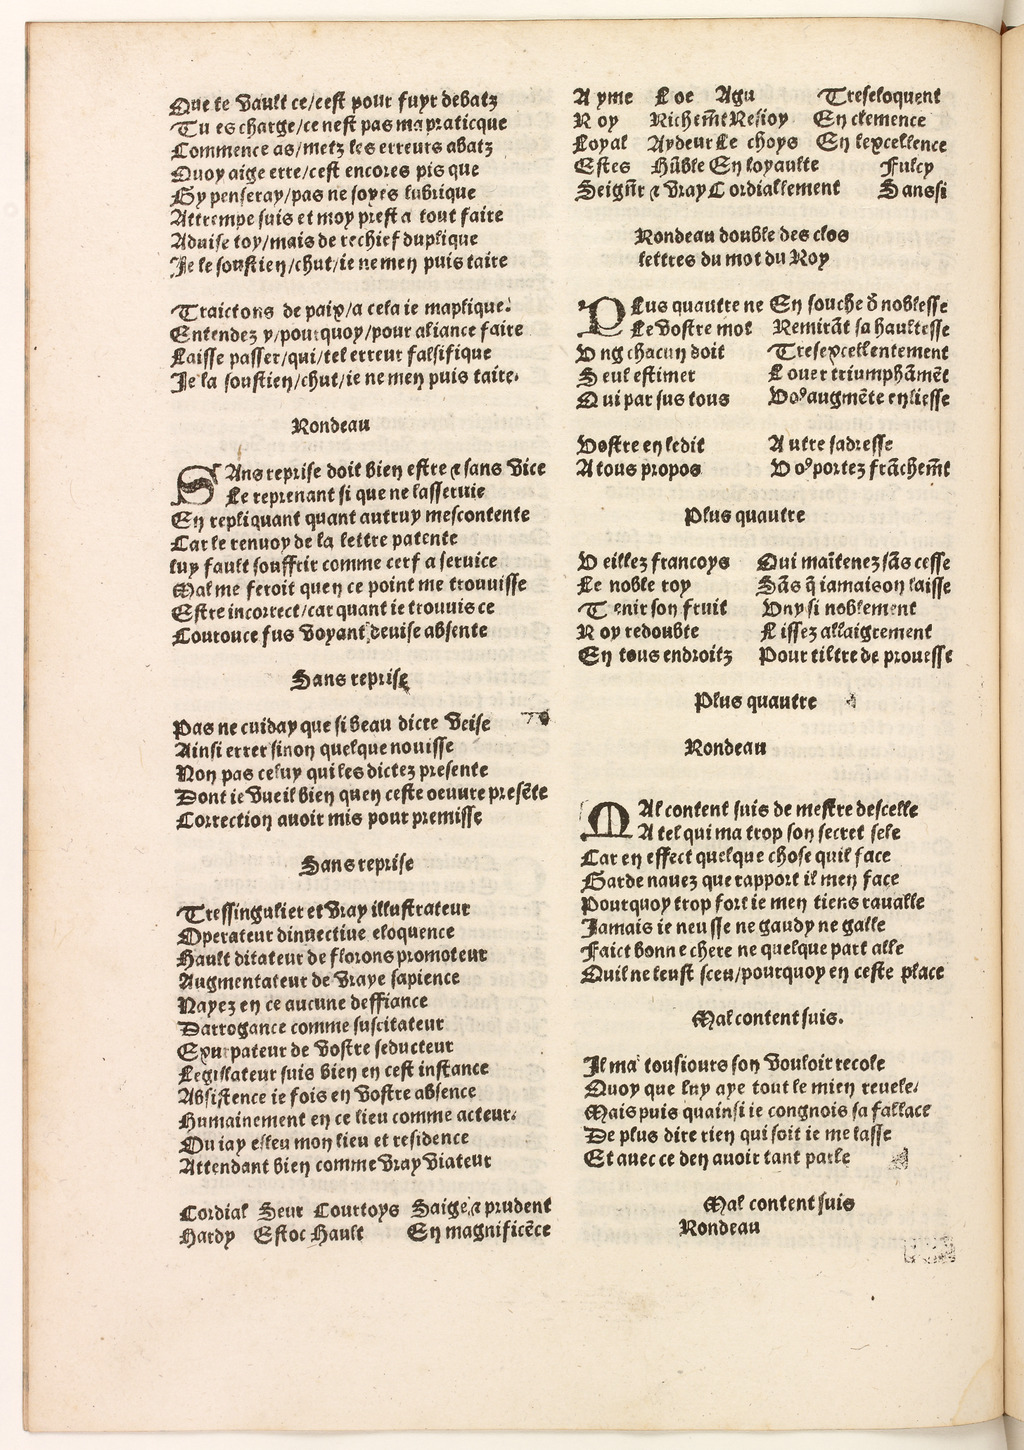 Que te vault ce/cest pour fuyr debatz
Tu es charge/ce nest pas ma praticque
Commence as/metz les erreurs abatz
Quoy aige erre/cest encores pis que
Gy penseray/pas ne soyes lubrique
Attrempe suis et moy prest a tout faire
Aduise toy/mais de rechief duplique
Je le soustien/chut/ie ne men puis taire

Traictons de paix/a cela ie maplique.
Entendez y/pourquoy/pour aliance faire
Laisse passer/qui/tel erreur falsifique
Je la soustien/chut/ie ne men puis taire.

Rondeau

SAns reprise doit bien estre & sans vice
Le reprenant si que ne lasseruie
En repliquant quant autruy mescontente
Car le renuoy de la lettre patente
luy fault souffrir comme cerf a seruice
Mal me feroit quen ce point me trouuisse
Estre incorrect/car quant ie trouuis ce
Courouce fus voyant deuise absente

Sans reprise

Pas ne cuiday que si beau dicte veise
Ainsi errer sinon quelque nouisse
Non pas celuy qui les dictez presente
Dont ie vueil bien quen ceste oeuure presẽte
Correction auoir mis pour premisse

Sans reprise

Tressingulier et vray illustrateur
Operateur dinuectiue eloquence
Hault ditateur de florons promoteur
Augmentateur de vraye sapience
Nayez en ce aucune deffiance
Darrogance comme suscitateur
Expurpateur de vostre seducteur
Legislateur suis bien en cest instance
Absistence ie fois en vostre absence
Humainement en ce lieu comme acteur.
Ou iay esleu mon lieu et residence
Attendant bien comme vray viateur

Cordial Seur Courtoys Saige & prudent
Hardy Estoc Hault En magnificẽce
Ayme Loe Agu Treseloquent
Roy Richemt̃ Resioy En clemence
Loyal Aydeur Le choys En lexcellence
Estes Hũble En loyaulte Fulcy
Seignr̃ & vray Cordiallement Sanssi

Rondeau double des clos
lettres du mot du Roy

PLus quaultre ne En souche d̃ noblesse
Le vostre mot Remirãt sa haultesse
Vng chacun doit Tresexcellentement
Seul estimer Louer triumphãmẽt
Qui par sus tous Voꝰ augmẽte en liesse

Vostre en ledit Aultre sadresse
A tous propos Voꝰ portez frãchemt̃

Plus quaultre

Veillez francoys Qui maĩtenez sãs cesse
Le noble roy Sãs q̃ iamais on laisse
Tenir son fruit Vny si noblement
Roy redoubte Lissez allaigrement
En tous endroitz Pour tiltre de prouesse

Plus quaultre

Rondeau

MAl content suis de mestre descelle
A tel qui ma trop son secret sele
Car en effect quelque chose quil face
Garde nauez que rapport il men face
Pourquoy trop fort ie men tiens raualle
Jamais ie neusse ne gaudy ne galle
Faict bonne chere ne quelque part alle
Quil ne leust sceu/pourquoy en ceste place

Mal content suis.

Il ma tousiours son vouloir recole
Quoy que luy aye tout le mien reuele/
Mais puis quainsi ie congnois sa fallace
De plus dire rien qui soit ie me lasse
Et auec ce den auoir tant parle

Mal content suis
Rondeau